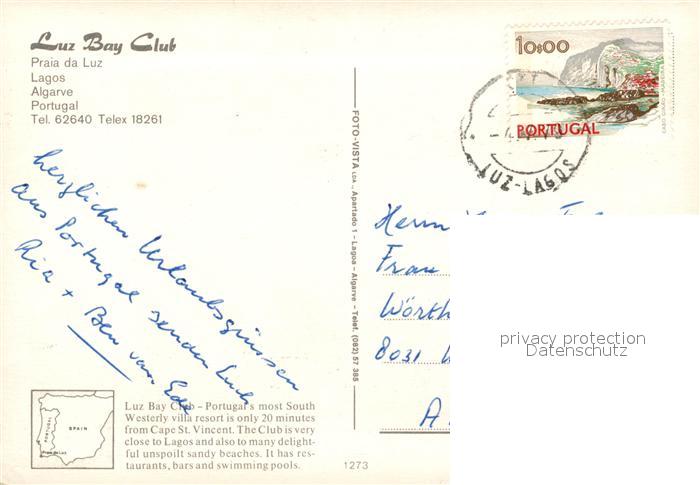 Luz Bay Club
Praia da Luz
Lagos
Algarve
Portugal
Tel. 62640 Telex 18261
10$00
PORTUGAL
CABO GIRÃO-MADEIRA
LUZ-LAGOS
FOTO-VISTA LDA., Apartado 1 - Lagoa - Algarve - Telef. (082) 57 385
herzlichen Urlaubsgrüssen
aus Portugal senden Euch
Ria + Ben van Ede
Herrn
Frau
Wörth
8031
A
privacy protection
Datenschutz
PORTUGAL
SPAIN
Praia da Luz
Luz Bay Club – Portugal's most South
Westerly villa resort is only 20 minutes
from Cape St. Vincent. The Club is very
close to Lagos and also to many delight-
ful unspoilt sandy beaches. It has res-
taurants, bars and swimming pools.
1273